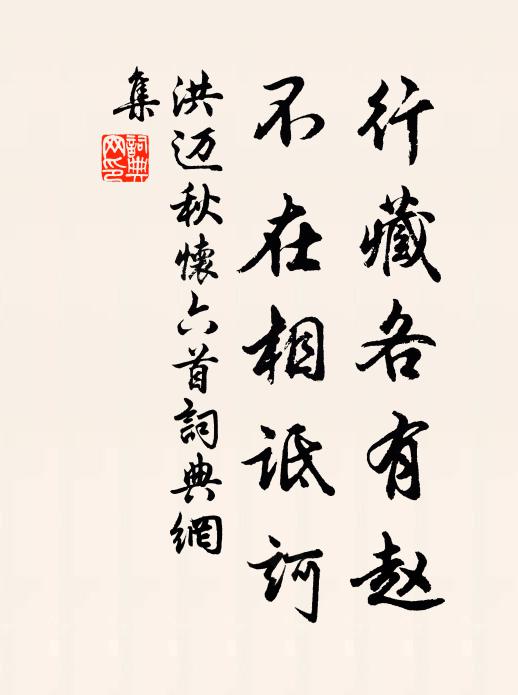 行藏各有赵
不在相诋訶
洪迈秋懷六首詞典網
集
詞典網印